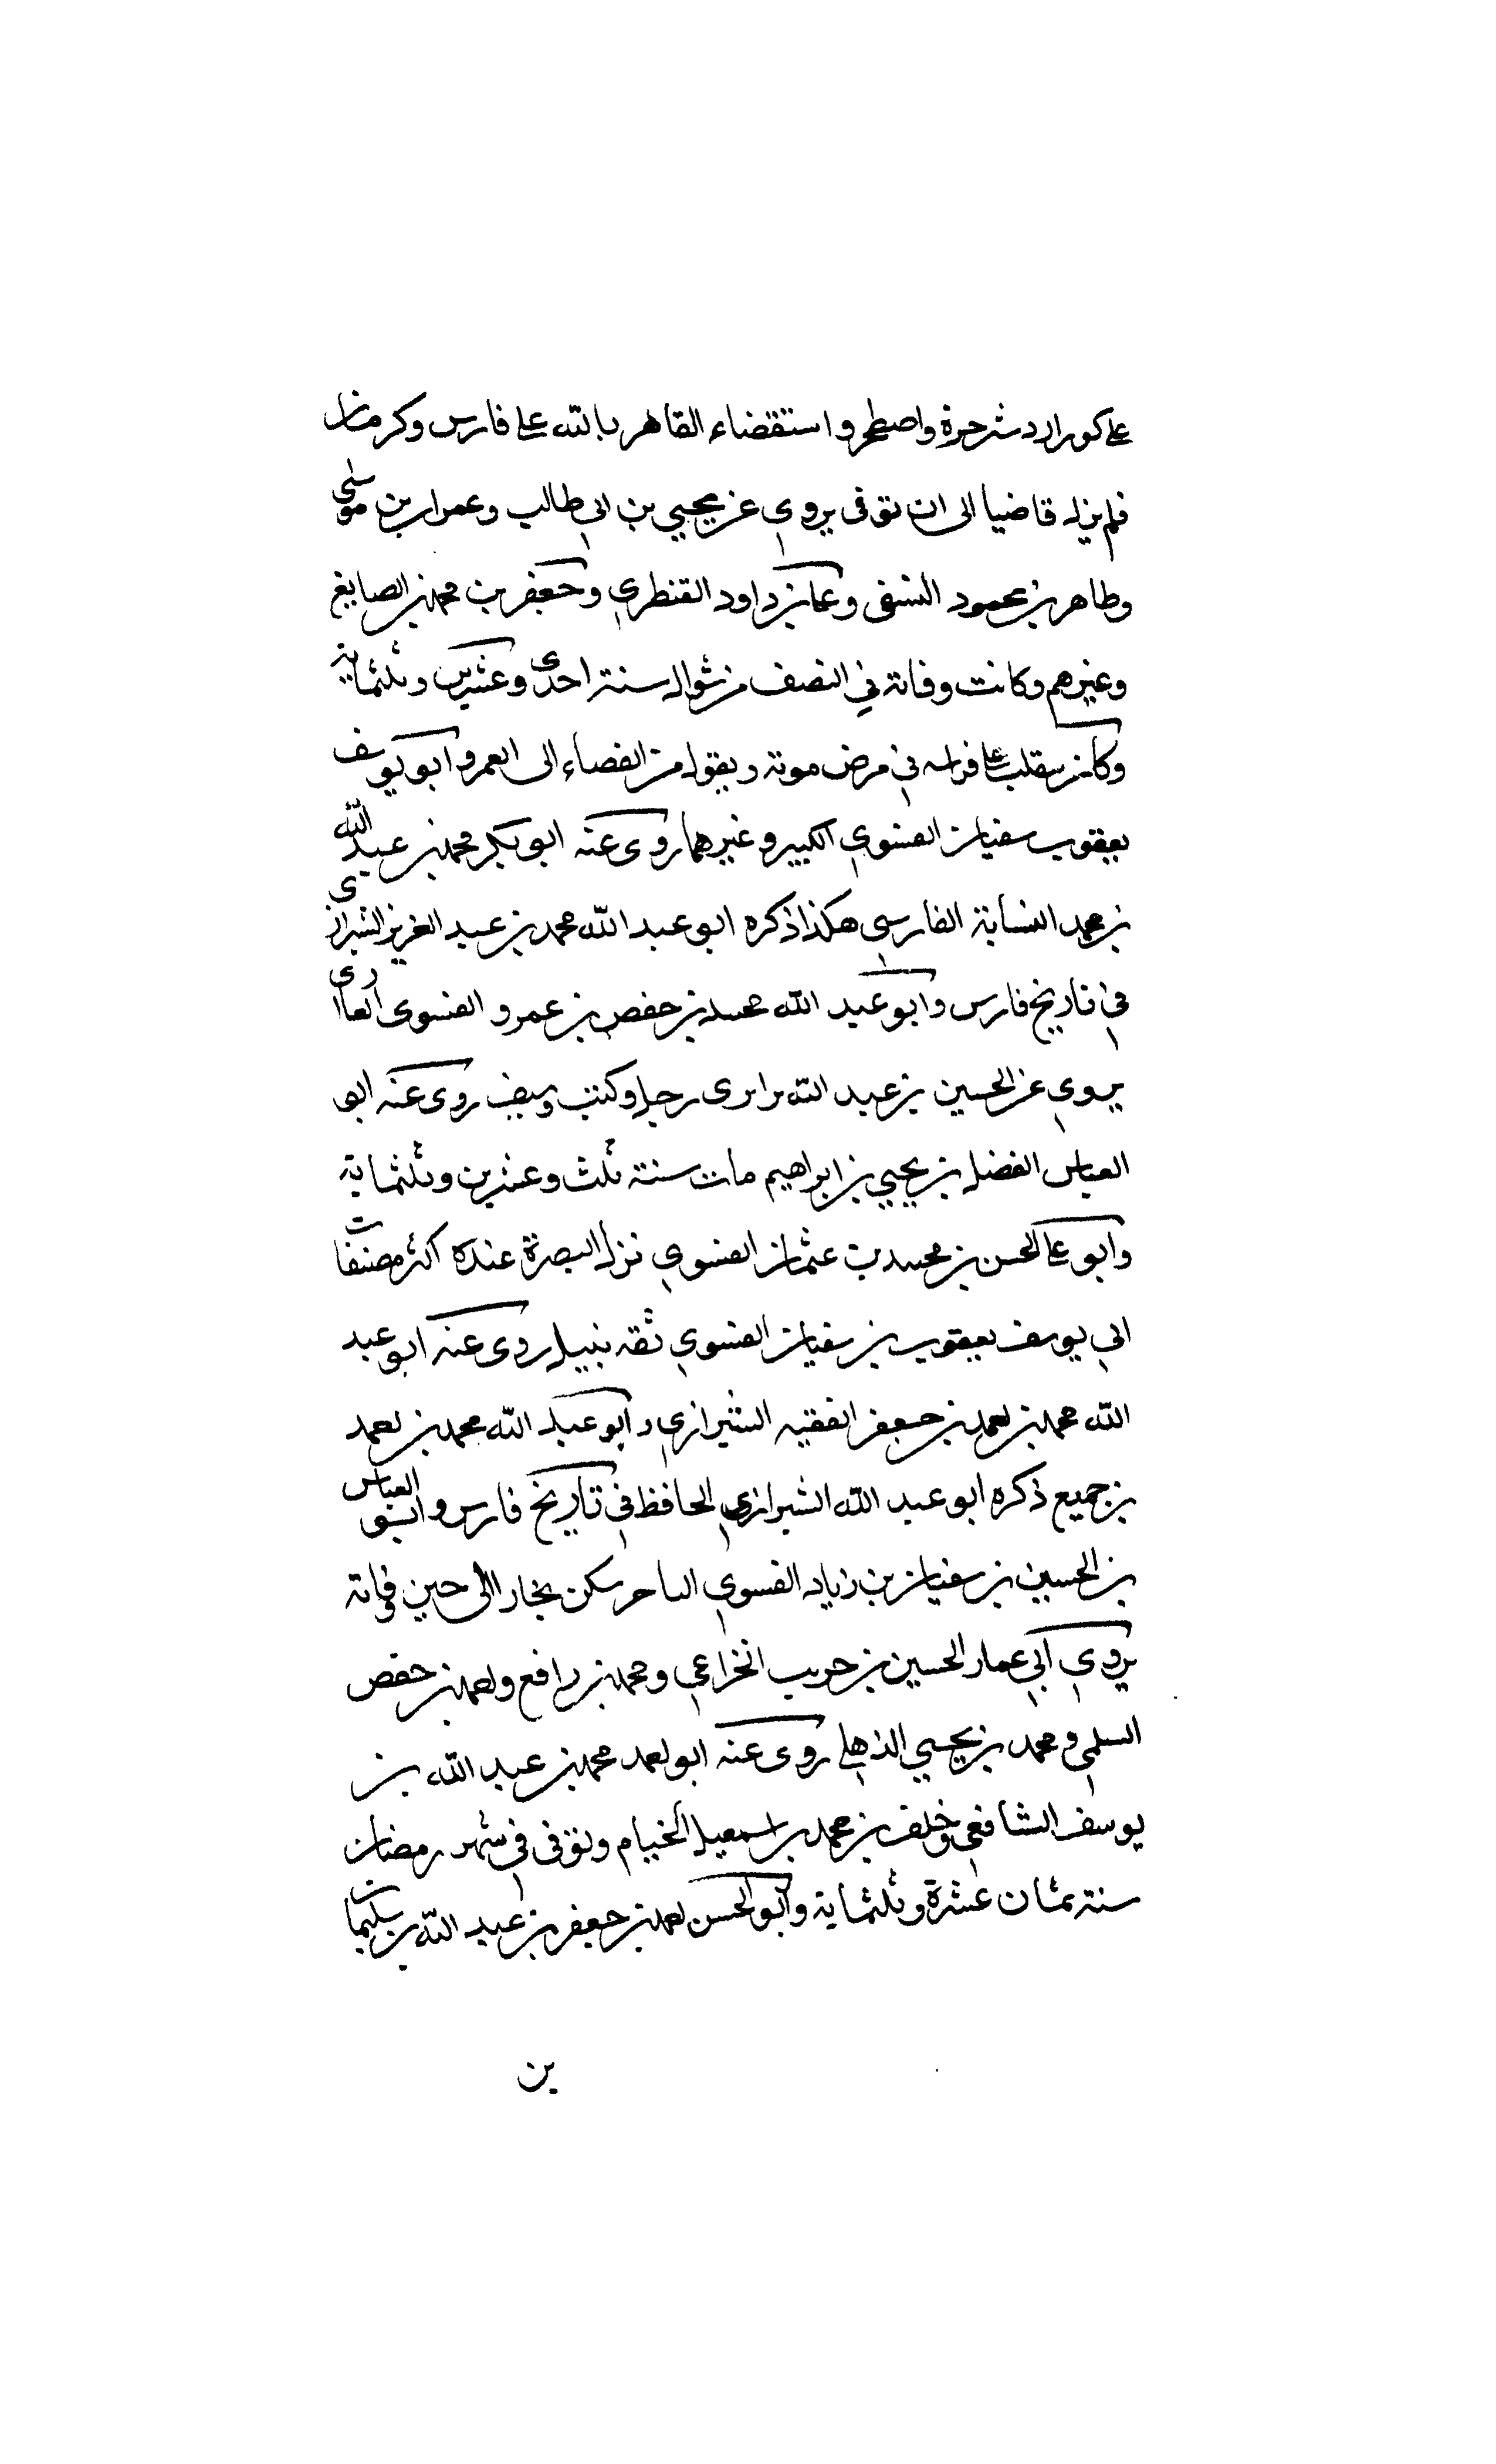 على كور اردشير خرة واصطخر واستقضاء القاهر بالله على فارس وكرمان
فلم يزل قاضيا الى ان توفى يروى عن يحيي بن ابى طالب وعمران بن موسى
وطاهر بن محمود النسفى وعلى بن داود القنطري وجعفر بن محمد بن الصايغ
وغيرهم وكانت وفاته في النصف من شوال سنة احدى وعشرين وثلثماية
وكان يتقلب على فراشه في مرض موته ويقول من القضاء الى القبر وابو يوسف
يعقوب سفيان الفسوي الكبير وغيرهما روى عنه ابو بكر محمد بن عبد الله
بن محمد النسابة الفارسي هكذا ذكره ابو عبد الله محمد بن عبد العزيز الشيرازى
في تاريخ فارس وابو عبد الله محمد بن حفص بن عمرو الفسوى
يروي عن الحسين بن عبد الله رجل وكنت روى عنه ابو
العباس الفضل بن يحيي بن ابراهيم مات سنة ثلث وعشرين وثلثماية
وابو على الحسن بن محمد بن عثمان الفسوي نزل البصرة عنده اكثر مصنفات
ابي يوسف يعقوب بن سفيان الفسوي ثقه نبيل روى عنه ابو عبد
الله محمد بن احمد بن جعفر الفقيه الشيرازي وابو عبد الله محمد بن احمد
بن جميع ذكره ابو عبد الله الشيرازي الحافظ في تاريخ فارس وابو العباس
بن الحسين بن سفيان بن زياد الفسوي سكن بخارا الى حين وفاته
يروي ابي عمار الحسين بن حريب الخزاعي ومحمد بن رافع واحمد بن حفص
السلمي ومحمد بن يحيي الذهلي روى عنه ابو احمد محمد بن عبد الله بن
يوسف الشافعي وخلف بن محمد بن اسمعيل الخيام وتوفى في شهر رمضان
سنة ثمان عشرة وثلثماية وابو الحسن احمد بن جعفر بن عبد الله بن
بن